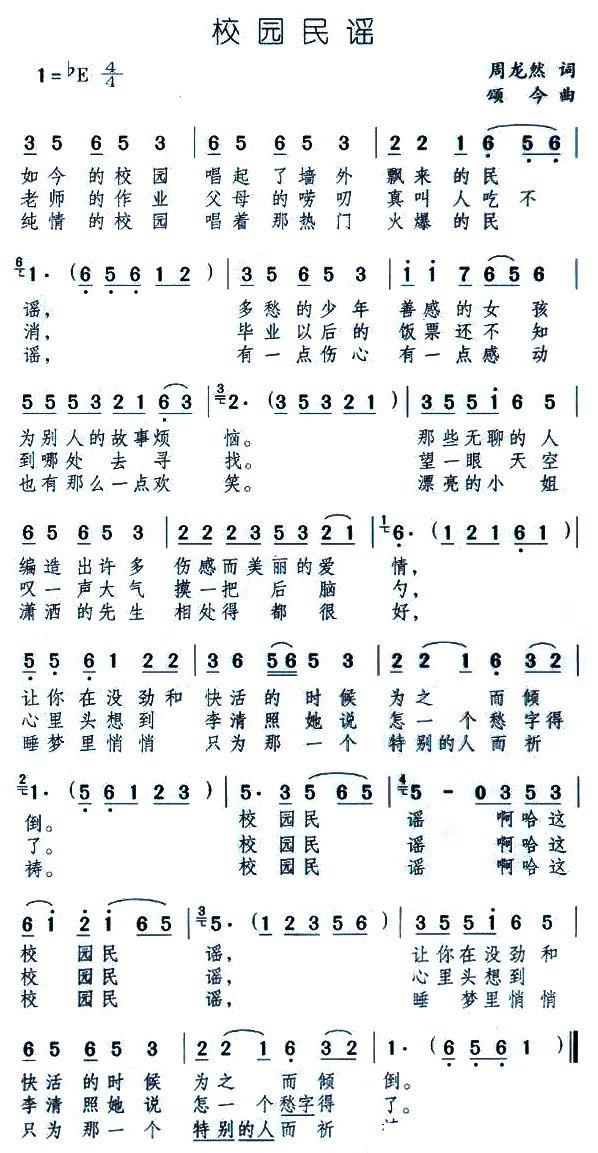 校园民谣
1=♭E 4/4
周龙然 词
颂 今 曲
3 5 6 5 3 | 6 5 6 5 3 | 2 2 1 6 5 6 |
如今的校园 唱起了墙外 飘来的民
老师的作业 父母的唠叨 真叫人吃不
纯情的校园 唱着那热门 火爆的民
6 1· (6 5 6 1 2) | 3 5 6 5 3 | i i 7 6 5 6 |
谣, 多愁的少年 善感的女孩
消, 毕业以后的 饭票还不知
谣, 有一点伤心 有一点感动
5 5 5 3 2 1 6 3 | 3 2· (3 5 3 2 1) | 3 5 5 i 6 5 |
为别人的故事烦 恼。 那些无聊的人
到哪处去寻 找。 望一眼天空
也有那么一点欢 笑。 漂亮的小姐
6 5 6 5 3 | 2 2 2 3 5 3 2 1 | 1 6· (1 2 1 6 1) |
编造出许多 伤感而美丽的爱 情,
叹一声大气 摸一把后脑 勺,
潇洒的先生 相处得都很 好,
5 5 6 1 2 2 | 3 6 5 6 5 3 | 2 2 1 6 3 2 |
让你在没劲和 快活的时候 为之而倾
心里头想到 李清照她说 怎一个愁字得
睡梦里悄悄 只为那一个 特别的人而祈
2 1· (5 6 1 2 3) | 5· 3 5 6 5 | 4 5 - 0 3 5 3 |
倒。 校园民 谣 啊哈这
了。 校园民 谣 啊哈这
祷。 校园民 谣 啊哈这
6 i 2 i 6 5 | 3 5· (1 2 3 5 6) | 3 5 5 i 6 5 |
校园民 谣, 让你在没劲和
校园民 谣, 心里头想到
校园民 谣, 睡梦里悄悄
6 5 6 5 3 | 2 2 1 6 3 2 | 1· (6 5 6 1) ‖
快活的时候 为之而倾 倒。
李清照她说 怎一个愁字得 了。
只为那一个 特别的人而祈